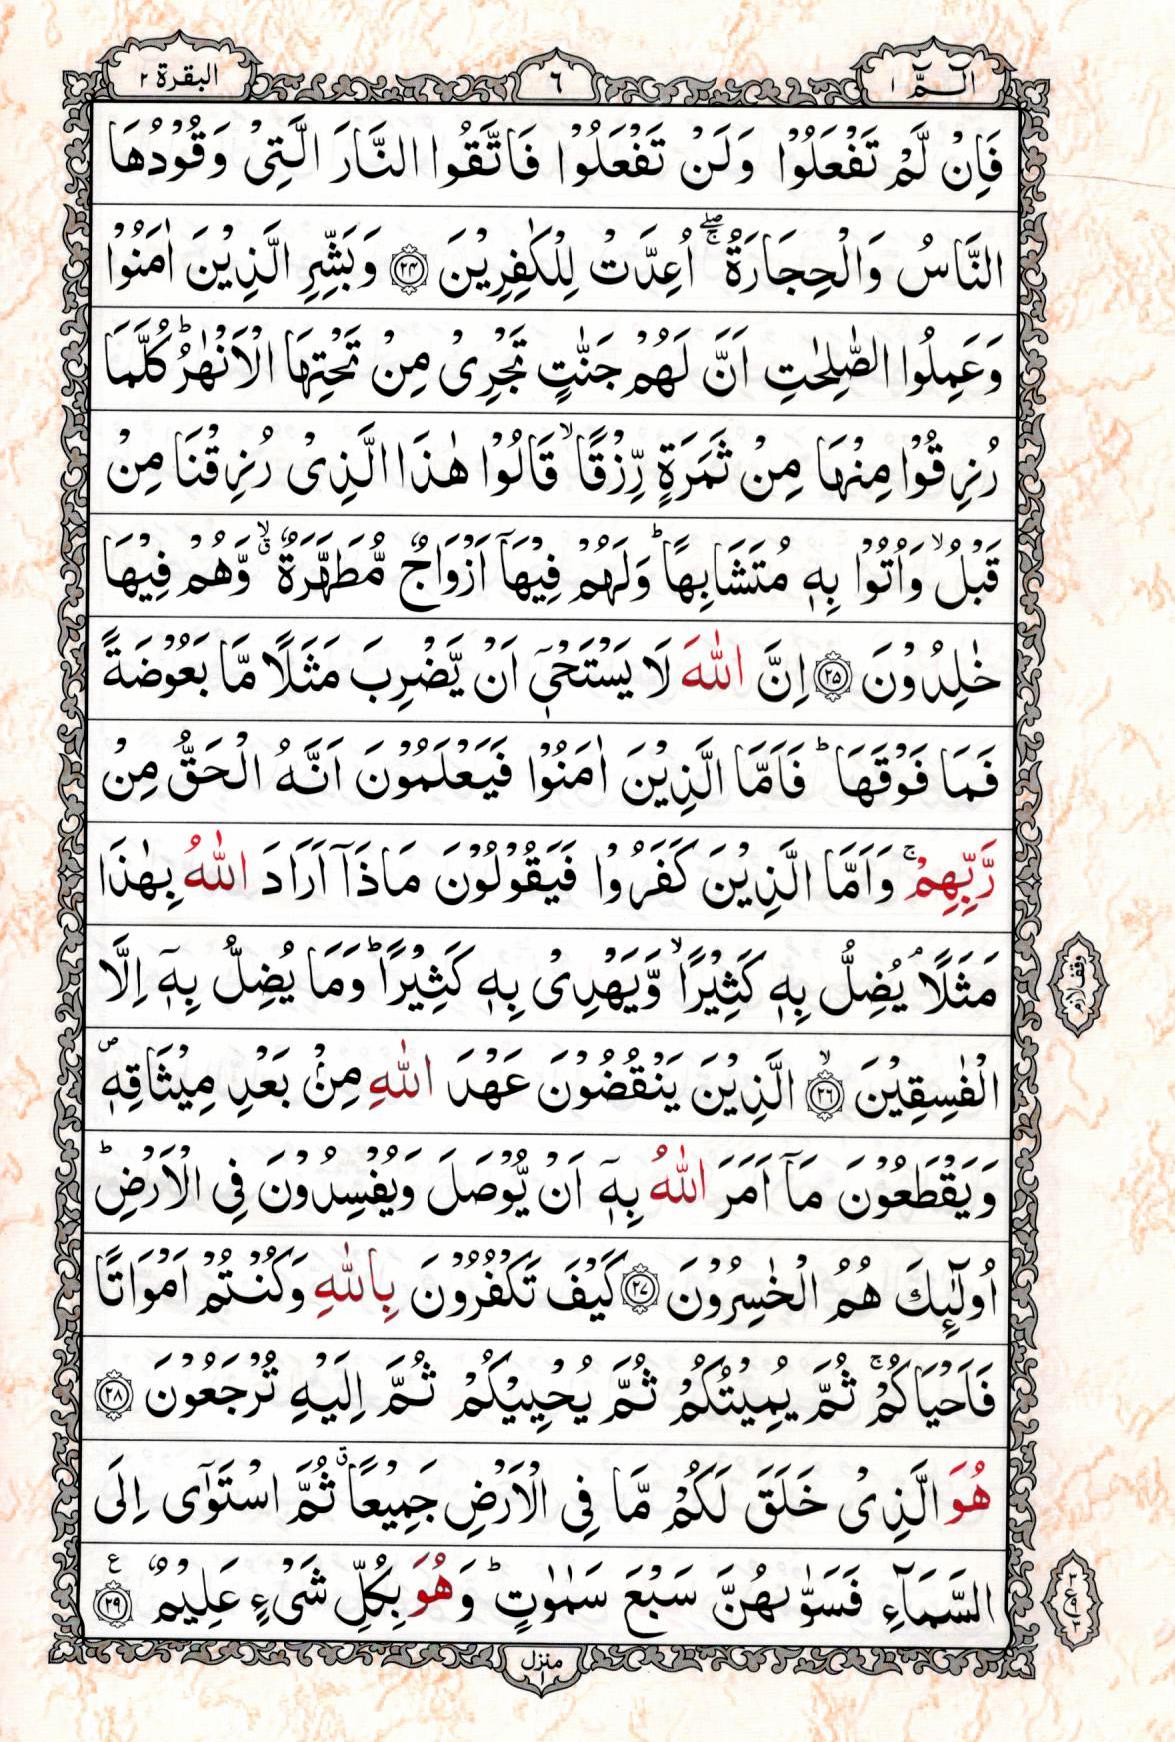 الٓمّٓ ١
٦
البقرة ٢
فَاِنْ لَّمْ تَفْعَلُوْا وَلَنْ تَفْعَلُوْا فَاتَّقُوا النَّارَ الَّتِیْ وَقُوْدُهَا
النَّاسُ وَالْحِجَارَةُ ۖۚ اُعِدَّتْ لِلْكٰفِرِیْنَ ﴿۲۴﴾ وَبَشِّرِ الَّذِیْنَ اٰمَنُوْا
وَعَمِلُوا الصّٰلِحٰتِ اَنَّ لَهُمْ جَنّٰتٍ تَجْرِیْ مِنْ تَحْتِهَا الْاَنْهٰرُ ؕ كُلَّمَا
رُزِقُوْا مِنْهَا مِنْ ثَمَرَةٍ رِّزْقًا ۙ قَالُوْا هٰذَا الَّذِیْ رُزِقْنَا مِنْ
قَبْلُ ۙ وَاُتُوْا بِهٖ مُتَشَابِهًا ؕ وَلَهُمْ فِیْهَاۤ اَزْوَاجٌ مُّطَهَّرَةٌ ۗۙ وَّهُمْ فِیْهَا
خٰلِدُوْنَ ﴿۲۵﴾ اِنَّ اللّٰهَ لَا یَسْتَحْیٖۤ اَنْ یَّضْرِبَ مَثَلًا مَّا بَعُوْضَةً
فَمَا فَوْقَهَا ؕ فَاَمَّا الَّذِیْنَ اٰمَنُوْا فَیَعْلَمُوْنَ اَنَّهُ الْحَقُّ مِنْ
رَّبِّهِمْ ۚ وَاَمَّا الَّذِیْنَ كَفَرُوْا فَیَقُوْلُوْنَ مَاذَاۤ اَرَادَ اللّٰهُ بِهٰذَا
مَثَلًا ۘ یُضِلُّ بِهٖ كَثِیْرًا ۙ وَّیَهْدِیْ بِهٖ كَثِیْرًا ؕ وَمَا یُضِلُّ بِهٖۤ اِلَّا
وقف لازم
الْفٰسِقِیْنَ ۙ﴿۲۶﴾ الَّذِیْنَ یَنْقُضُوْنَ عَهْدَ اللّٰهِ مِنْۢ بَعْدِ مِیْثَاقِهٖ ۪
وَیَقْطَعُوْنَ مَاۤ اَمَرَ اللّٰهُ بِهٖۤ اَنْ یُّوْصَلَ وَیُفْسِدُوْنَ فِی الْاَرْضِ ؕ
اُولٰٓئِكَ هُمُ الْخٰسِرُوْنَ ﴿۲۷﴾ كَیْفَ تَكْفُرُوْنَ بِاللّٰهِ وَكُنْتُمْ اَمْوَاتًا
فَاَحْیَاكُمْ ۚ ثُمَّ یُمِیْتُكُمْ ثُمَّ یُحْیِیْكُمْ ثُمَّ اِلَیْهِ تُرْجَعُوْنَ ﴿۲۸﴾
هُوَ الَّذِیْ خَلَقَ لَكُمْ مَّا فِی الْاَرْضِ جَمِیْعًا ۗ ثُمَّ اسْتَوٰۤی اِلَی
السَّمَآءِ فَسَوّٰىهُنَّ سَبْعَ سَمٰوٰتٍ ؕ وَهُوَ بِكُلِّ شَیْءٍ عَلِیْمٌ ﴿۲۹﴾ ع
منزل ١